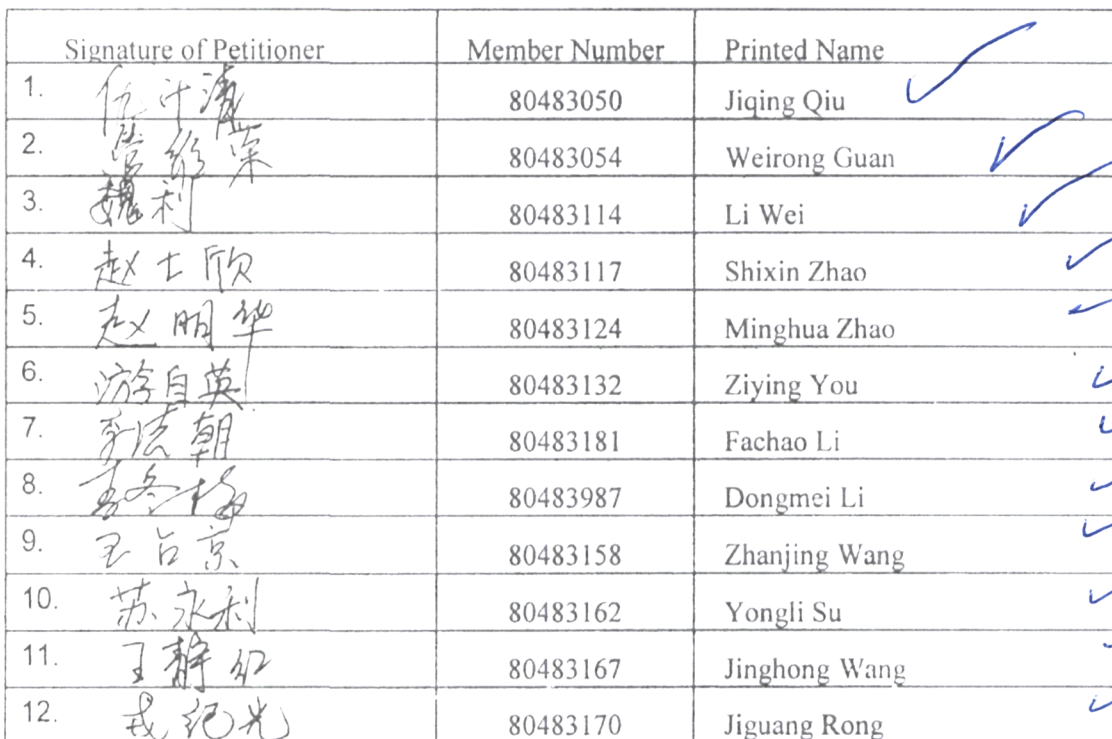 Signature of Petitioner Member Number Printed Name
1. 仇计清 80483050 Jiqing Qiu
2. 管维荣 80483054 Weirong Guan
3. 魏利 80483114 Li Wei
4. 赵士欣 80483117 Shixin Zhao
5. 赵明华 80483124 Minghua Zhao
6. 游自英 80483132 Ziying You
7. 李法朝 80483181 Fachao Li
8. 李冬梅 80483987 Dongmei Li
9. 王占京 80483158 Zhanjing Wang
10. 苏永利 80483162 Yongli Su
11. 王静红 80483167 Jinghong Wang
12. 戎纪光 80483170 Jiguang Rong